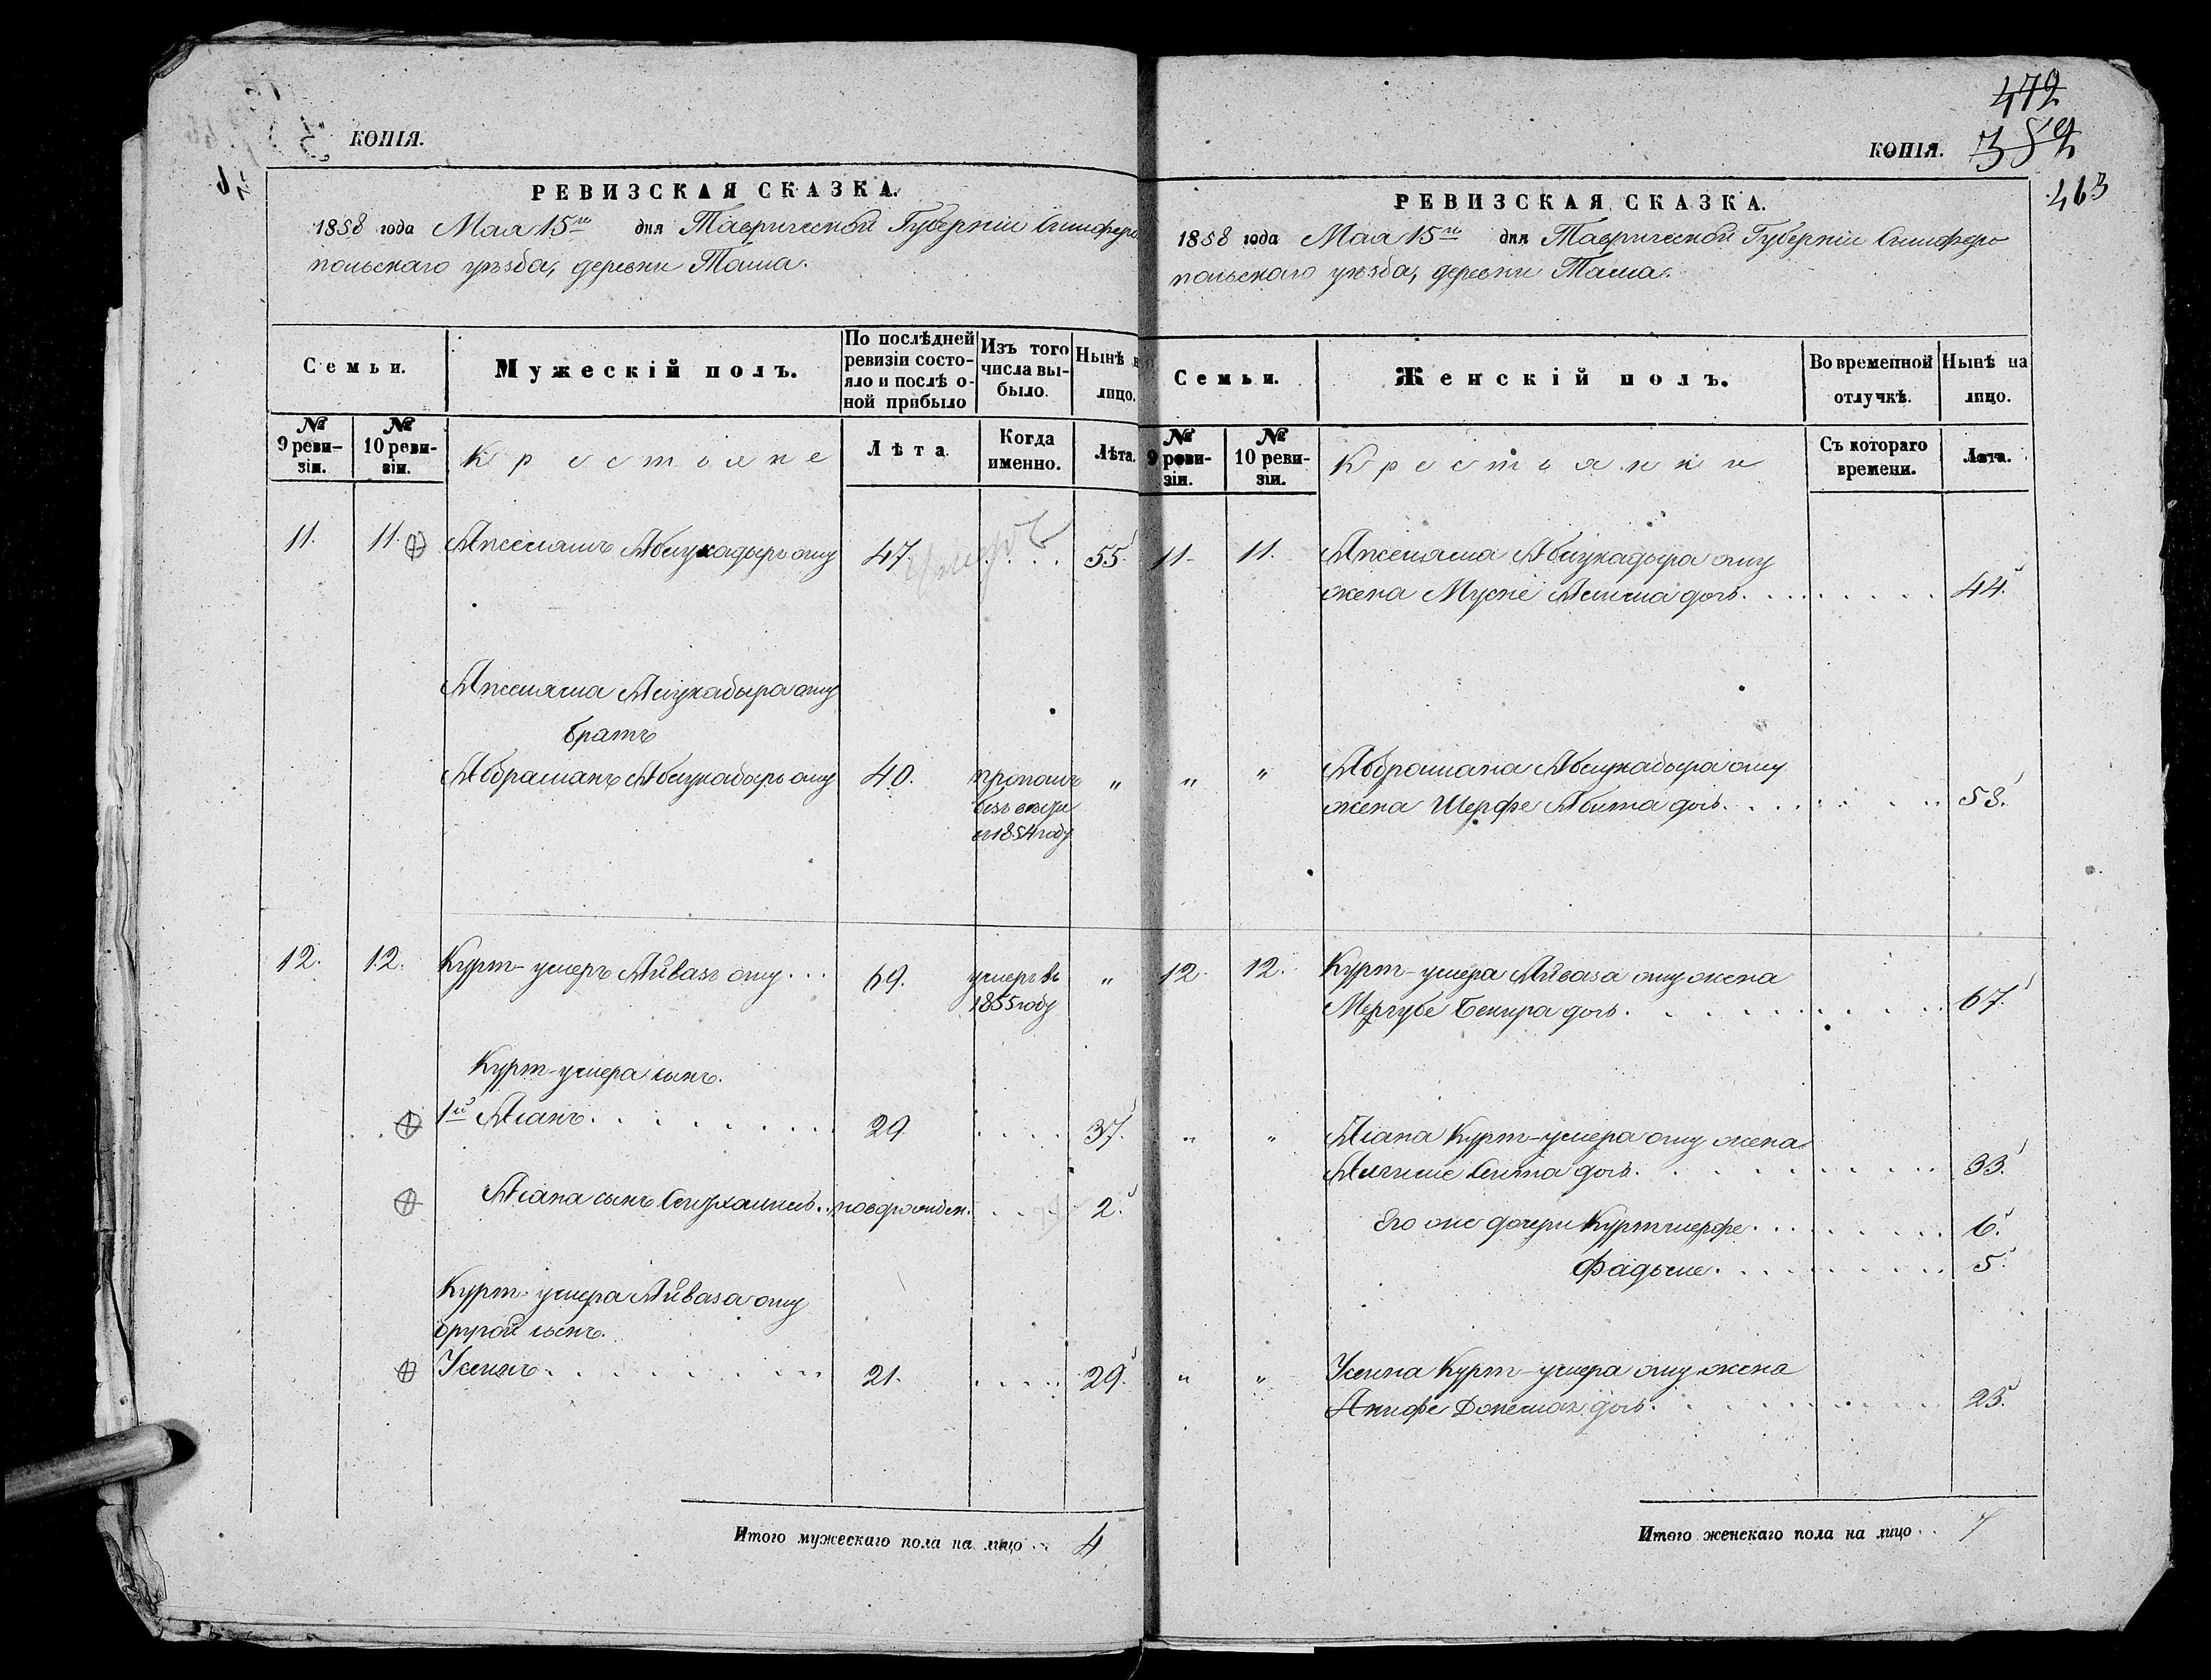 КОПІЯ.
РЕВИЗСКАЯ СКАЗКА.
1858 года Мая 15го дня Таврической Губерніи Симферо
польскаго уѣзда, деревни Таша.
Семьи.
Мужескій полъ.
По послѣдней
ревизіи состо-
яло и послѣ о-
ной прибыло
Изъ того
числа вы-
было.
Нынѣ на
лицо.
№
9 реви-
зіи.
№
10 реви-
зіи.
Крестьяне
Лѣта
Когда
именно.
Лѣта.
11. 11. Аблукадыръ оглу 47. умеръ .... 55
Аблукадыра оглу
братъ
Абдраманъ Аблукадыръ оглу 40. пропалъ „
безъ вѣсти
въ 1854 году
12. 12. Курт-умеръ Айвазъ оглу... 69. умеръ въ „
1855 году
Курт-умера сынъ.
1й Асанъ. . . . . . . . 29 .... 37.
Асана сынъ .. новорожден. .... 2.
Курт-умера Айваза оглу
другой сынъ.
Усеинъ. . . . . . . . . 21. .... 29.
Итого мужескаго пола на лицо .. 4
472
КОПІЯ. 382
463
РЕВИЗСКАЯ СКАЗКА.
1858 года Мая 15го дня Таврической Губерніи Симферо
польскаго уѣзда, деревни Таша.
Семьи.
Женскій полъ.
Во временной
отлучкѣ.
Нынѣ на
лицо.
№
9 реви-
зіи.
№
10 реви-
зіи.
Крестьянки
Съ котораго
времени.
Лѣта.
11. 11. Аблукадыра оглу
жена дочь. . . . . . . . . 44.
„ „ Абдрамана Аблукадыра оглу
жена Шерфе дочь. . . . . . . . 58.
12 12. Курт-умера Айваза оглу жена
Мергубе Бекира дочь. . . . . . . . . 67.
„ „ Асана Курт-умера оглу жена
Сеита дочь. . . . . . . . . . 33.
Его же дочери Куртшерфе. . . . . . . . 6.
Фадьме. . . . . . . . . 5.
„ „ Усеина Курт-умера оглу жена
дочь. . . . . . . . . . 25.
Итого женскаго пола на лицо .. 7